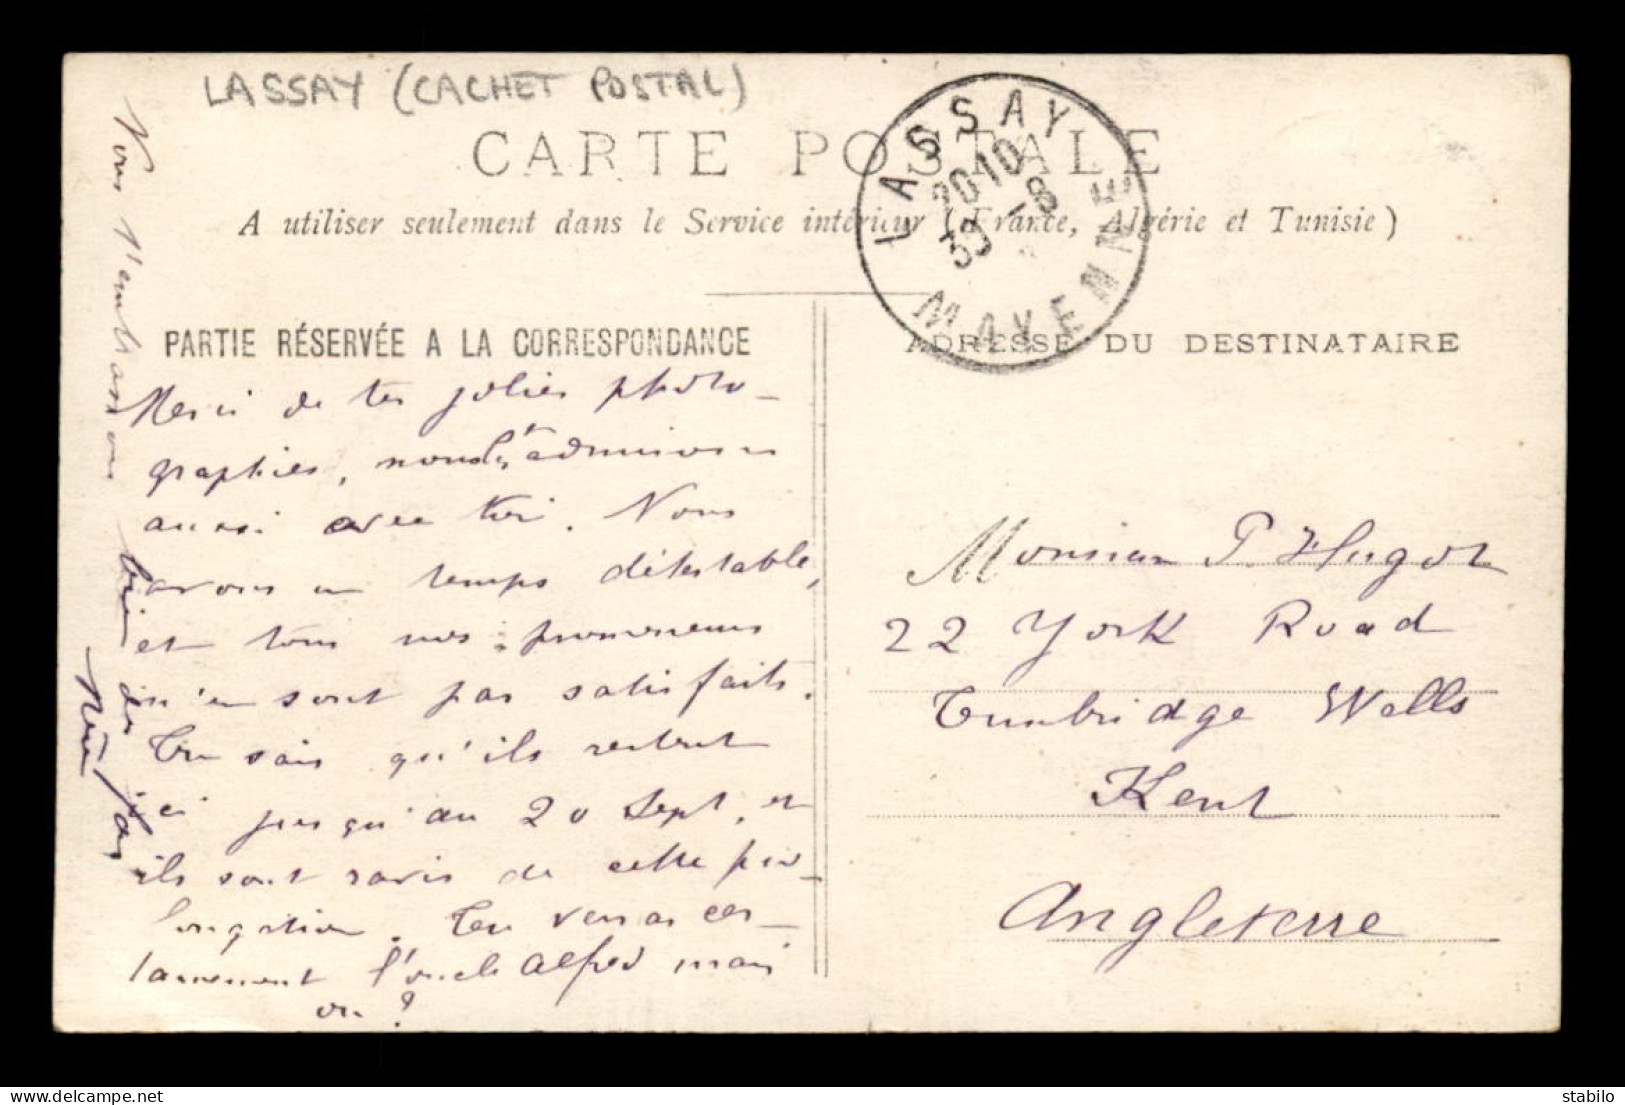 LASSAY (CACHET POSTAL)
CARTE POSTALE
A utiliser seulement dans le Service intérieur (France, Algérie et Tunisie)
LASSAY
20·10
-8
MAYENNE
PARTIE RÉSERVÉE A LA CORRESPONDANCE
Merci de tes jolies photo-
graphies, nous les admirons
aussi avec toi. Nous
avons un temps détestable,
et tous nos promeneurs
n'en sont pas satisfaits.
Tu sais qu'ils restent
ici jusqu'au 20 Sept, et
ils sont ravis de cette pro-
longation. Tu verras cer-
tainement l'oncle Alfred mais
où ?
Nous t'embrassons bien
ADRESSE DU DESTINATAIRE
Monsieur P. Hugot
22 York Road
Tunbridge Wells
Kent
Angleterre
stabilo